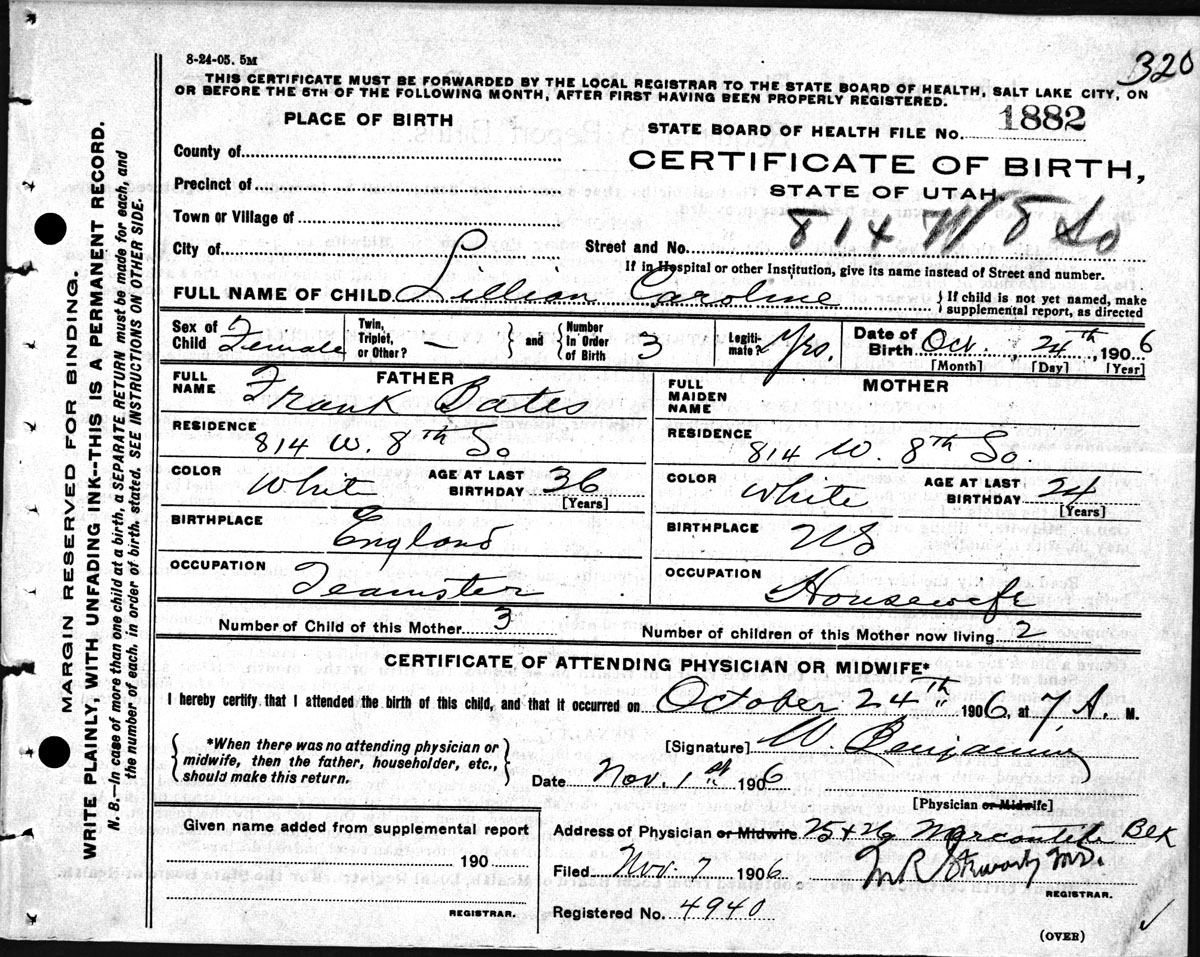 320
8-24-05. 5M
THIS CERTIFICATE MUST BE FORWARDED BY THE LOCAL REGISTRAR TO THE STATE BOARD OF HEALTH, SALT LAKE CITY, ON
OR BEFORE THE 5TH OF THE FOLLOWING MONTH, AFTER FIRST HAVING BEEN PROPERLY REGISTERED.
PLACE OF BIRTH
STATE BOARD OF HEALTH FILE No. 1882
County of
CERTIFICATE OF BIRTH,
Precinct of
STATE OF UTAH
Town or Village of
City of
Street and No. 814 W 8 So
If in Hospital or other Institution, give its name instead of Street and number.
FULL NAME OF CHILD Lillian Caroline { If child is not yet named, make
supplemental report, as directed
Sex of Child Female
Twin, Triplet, or Other? —
} and {
Number In Order of Birth 3
Legiti-mate? Yes.
Date of Birth Oct. 24th, 1906
[Month] [Day] [Year]
FATHER
FULL NAME Frank Bates
MOTHER
FULL MAIDEN NAME
RESIDENCE 814 W. 8th So
RESIDENCE 814 W. 8th So.
COLOR White AGE AT LAST BIRTHDAY 36 [Years]
COLOR White AGE AT LAST BIRTHDAY 24 [Years]
BIRTHPLACE England
BIRTHPLACE US
OCCUPATION Teamster
OCCUPATION Housewife
Number of Child of this Mother 3
Number of children of this Mother now living 2
CERTIFICATE OF ATTENDING PHYSICIAN OR MIDWIFE*
I hereby certify that I attended the birth of this child, and that it occurred on October 24th 1906, at 7, A. M.
{ *When there was no attending physician or
midwife, then the father, householder, etc.,
should make this return. }
[Signature] W. Benjamin
Date Nov. 1st 1906
[Physician or Midwife]
Given name added from supplemental report
190
REGISTRAR.
Address of Physician or Midwife 25 + 26 Mercantile Blk
Filed Nov. 7 1906 M R Stewart M.D.
REGISTRAR.
Registered No. 4940
(OVER)
MARGIN RESERVED FOR BINDING.
WRITE PLAINLY, WITH UNFADING INK--THIS IS A PERMANENT RECORD.
N. B.—In case of more than one child at a birth, a SEPARATE RETURN must be made for each, and
the number of each, in order of birth, stated. SEE INSTRUCTIONS ON OTHER SIDE.